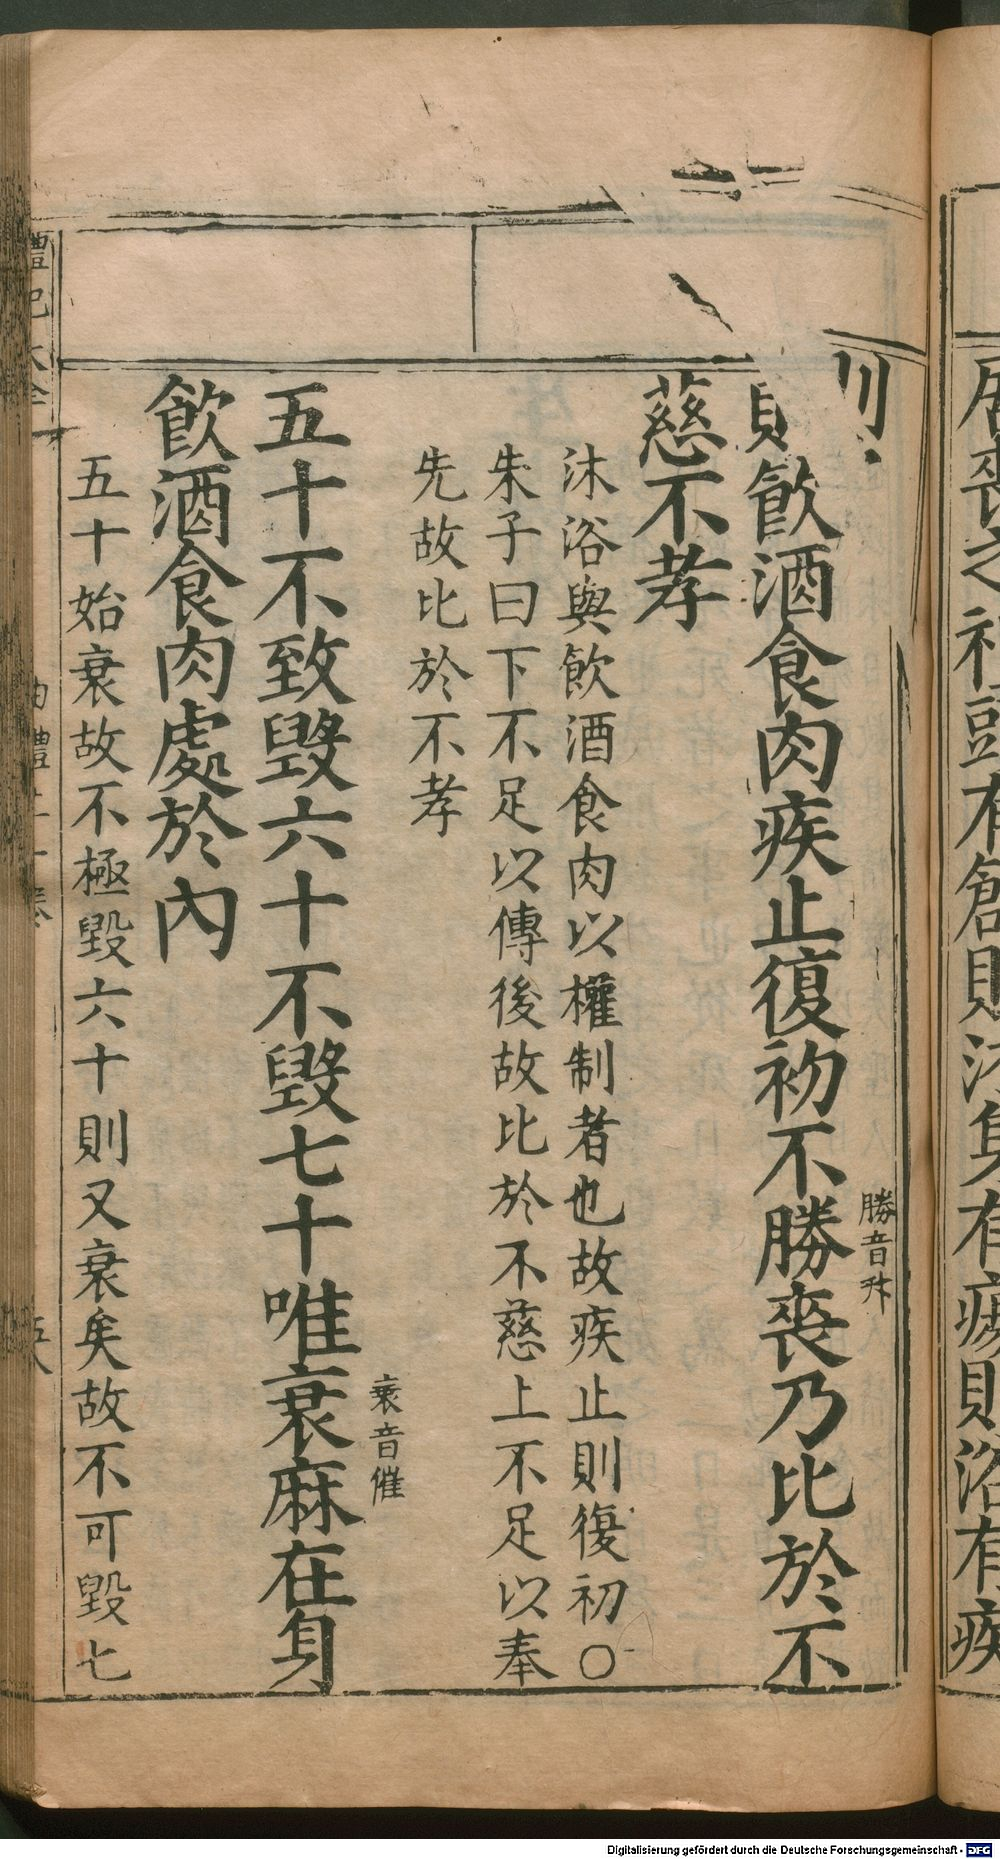 居喪之禮頭有創則沐身有瘍則浴有疾
則飲酒食肉疾止復初不勝喪乃比於不
勝音升
慈不孝
沐浴與飲酒食肉以權制者也故疾止則復初〇
朱子曰下不足以傳後故比於不慈上不足以奉
先故比於不孝
衰音催
五十不致毀六十不毀七十唯衰麻在身
飲酒食肉處於內
五十始衰故不極毀六十則又衰矣故不可毀七
禮記大全
曲禮上 一卷
Digitalisierung gefördert durch die Deutsche Forschungsgemeinschaft - DFG